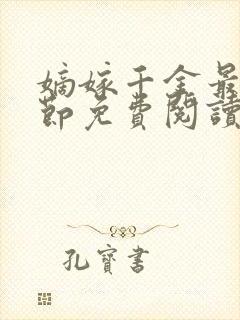 嫡嫁千金最
節免費閱讀
孔寶書